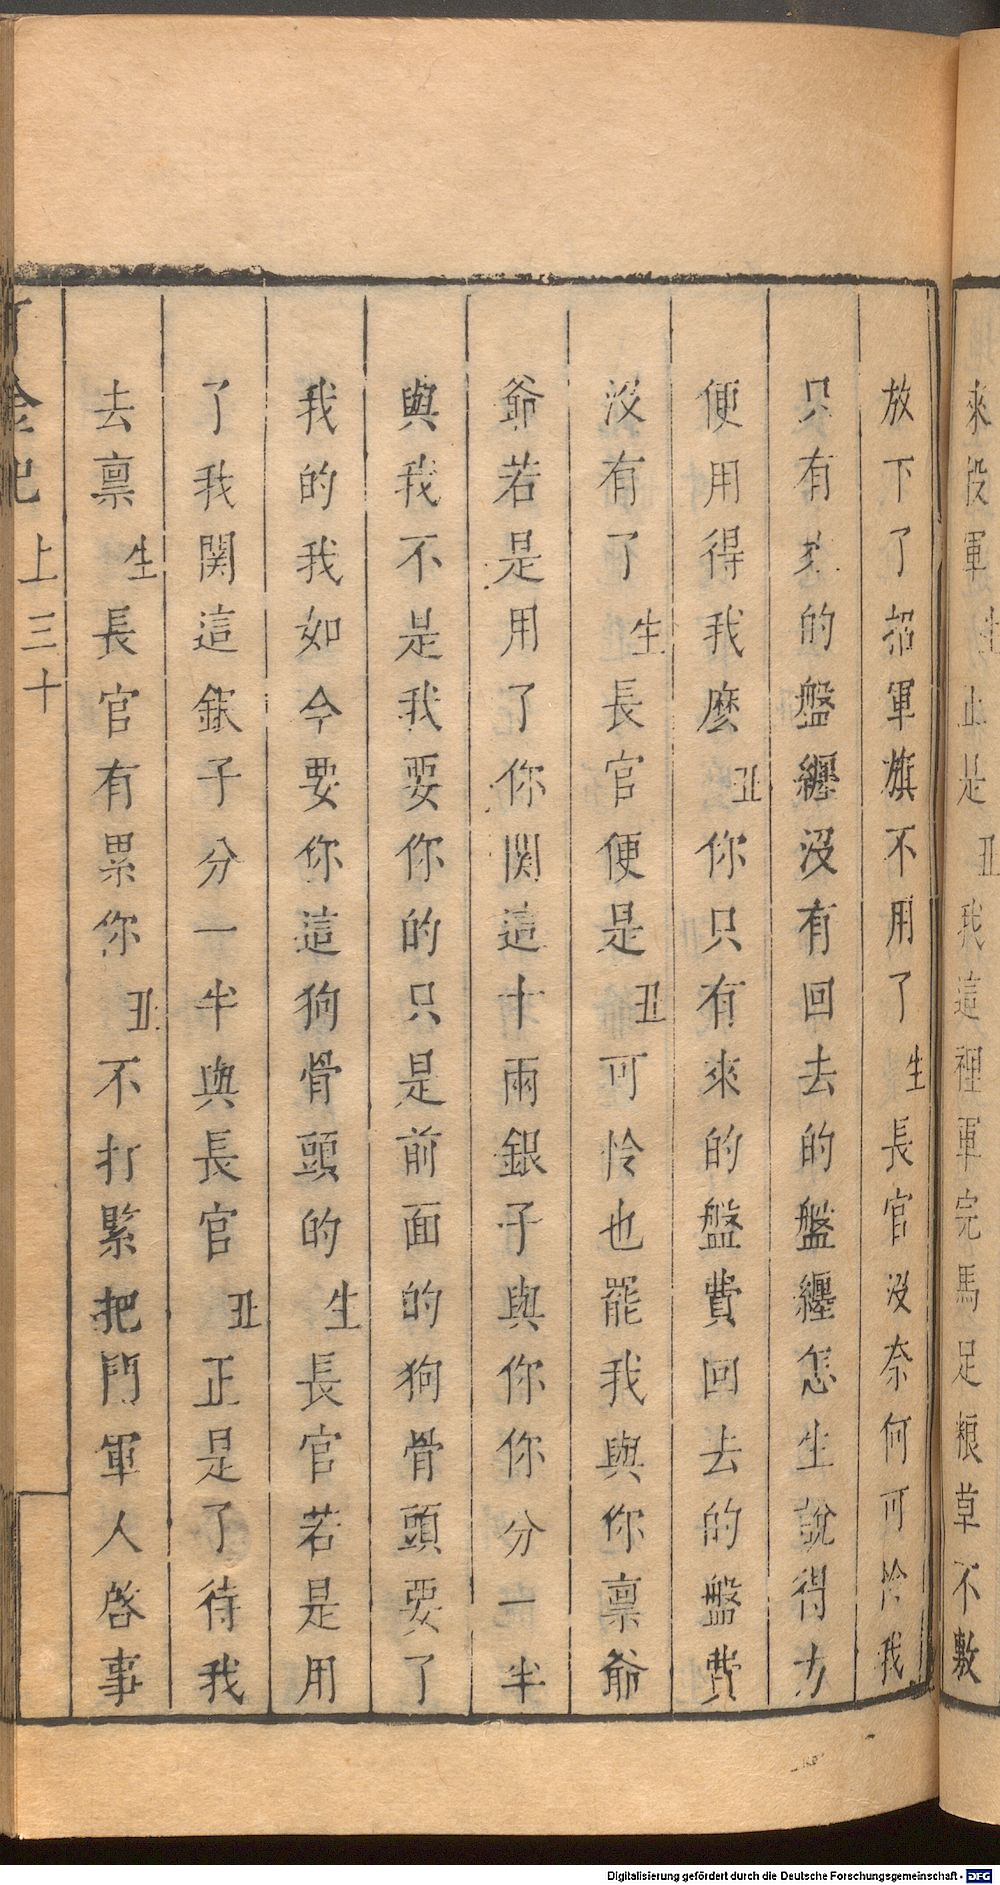 來役軍生止是丑我這裡軍完馬足粮草不敷
放下了招軍旗不用了生長官沒奈何可怜我
只有來的盤纏沒有回去的盤纏怎生說得方
便用得我麽丑你只有來的盤費回去的盤費
沒有了生長官便是丑可怜也罷我與你禀爺
爺若是用了你関這十兩銀子與你你分一半
與我不是我要你的只是前面的狗骨頭要了
我的我如今要你這狗骨頭的生長官若是用
了我関這銀子分一半與長官丑正是了待我
去禀生長官有累你丑不打緊把門軍人啓事
上三十
Digitalisierung gefördert durch die Deutsche Forschungsgemeinschaft - DFG